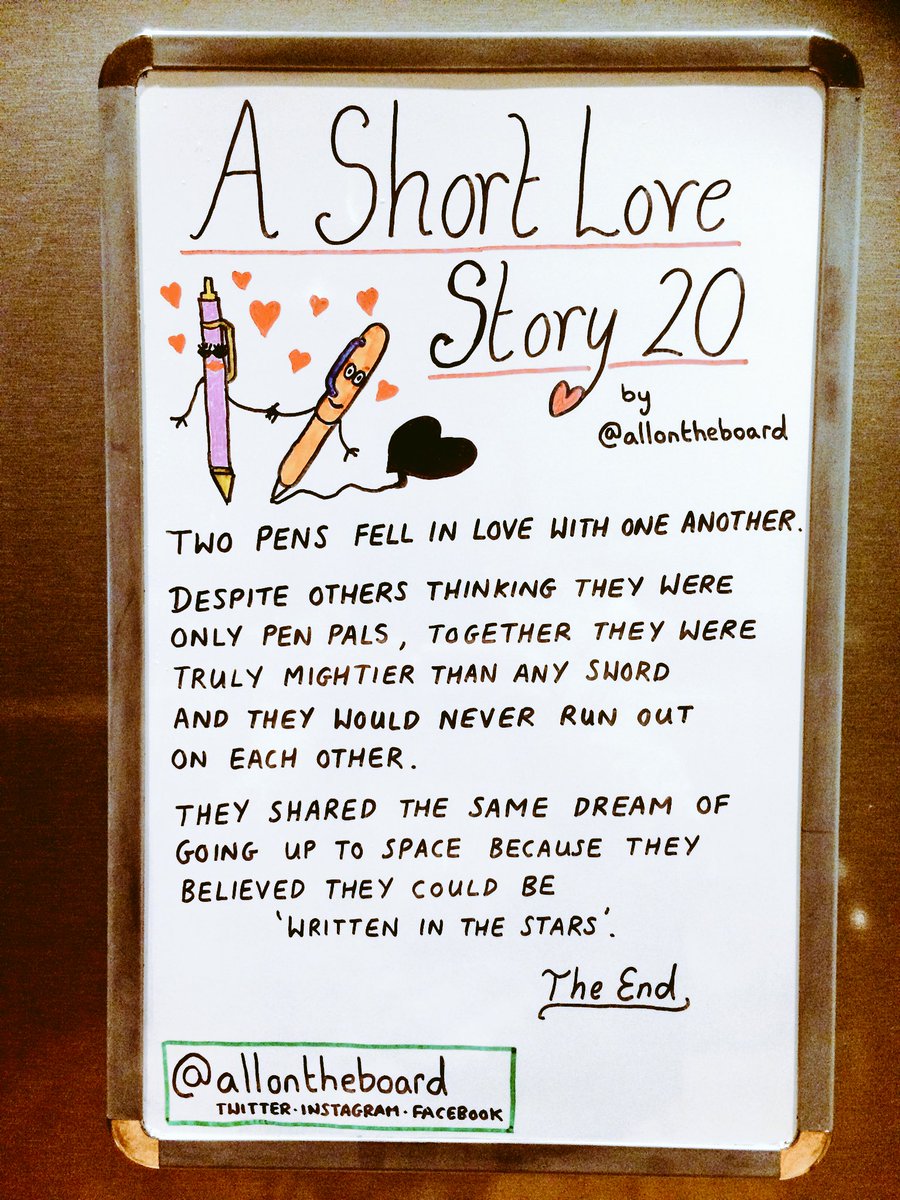 A Short Love
Story 20
by
@allontheboard
TWO PENS FELL IN LOVE WITH ONE ANOTHER.
DESPITE OTHERS THINKING THEY WERE
ONLY PEN PALS, TOGETHER THEY WERE
TRULY MIGHTIER THAN ANY SWORD
AND THEY WOULD NEVER RUN OUT
ON EACH OTHER.
THEY SHARED THE SAME DREAM OF
GOING UP TO SPACE BECAUSE THEY
BELIEVED THEY COULD BE
'WRITTEN IN THE STARS'.
The End.
@allontheboard
TWITTER·INSTAGRAM·FACEBOOK